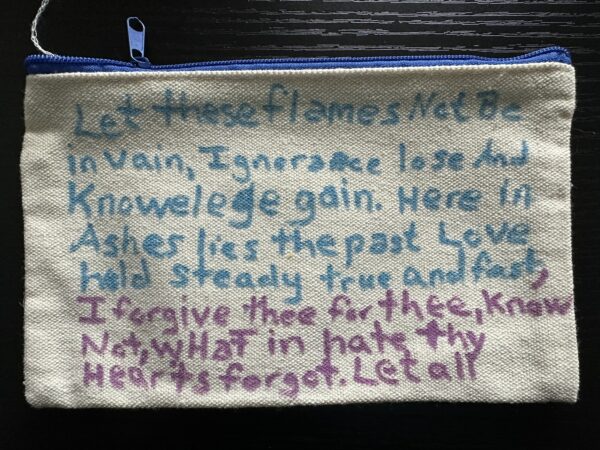 Let these flames Not Be
in vain, Ignorance lose And
Knowelege gain. Here in
Ashes lies the past Love
held steady true and fast,
I forgive thee for thee, Know
Not, WHaT in hate thy
Hearts forgot. Let all